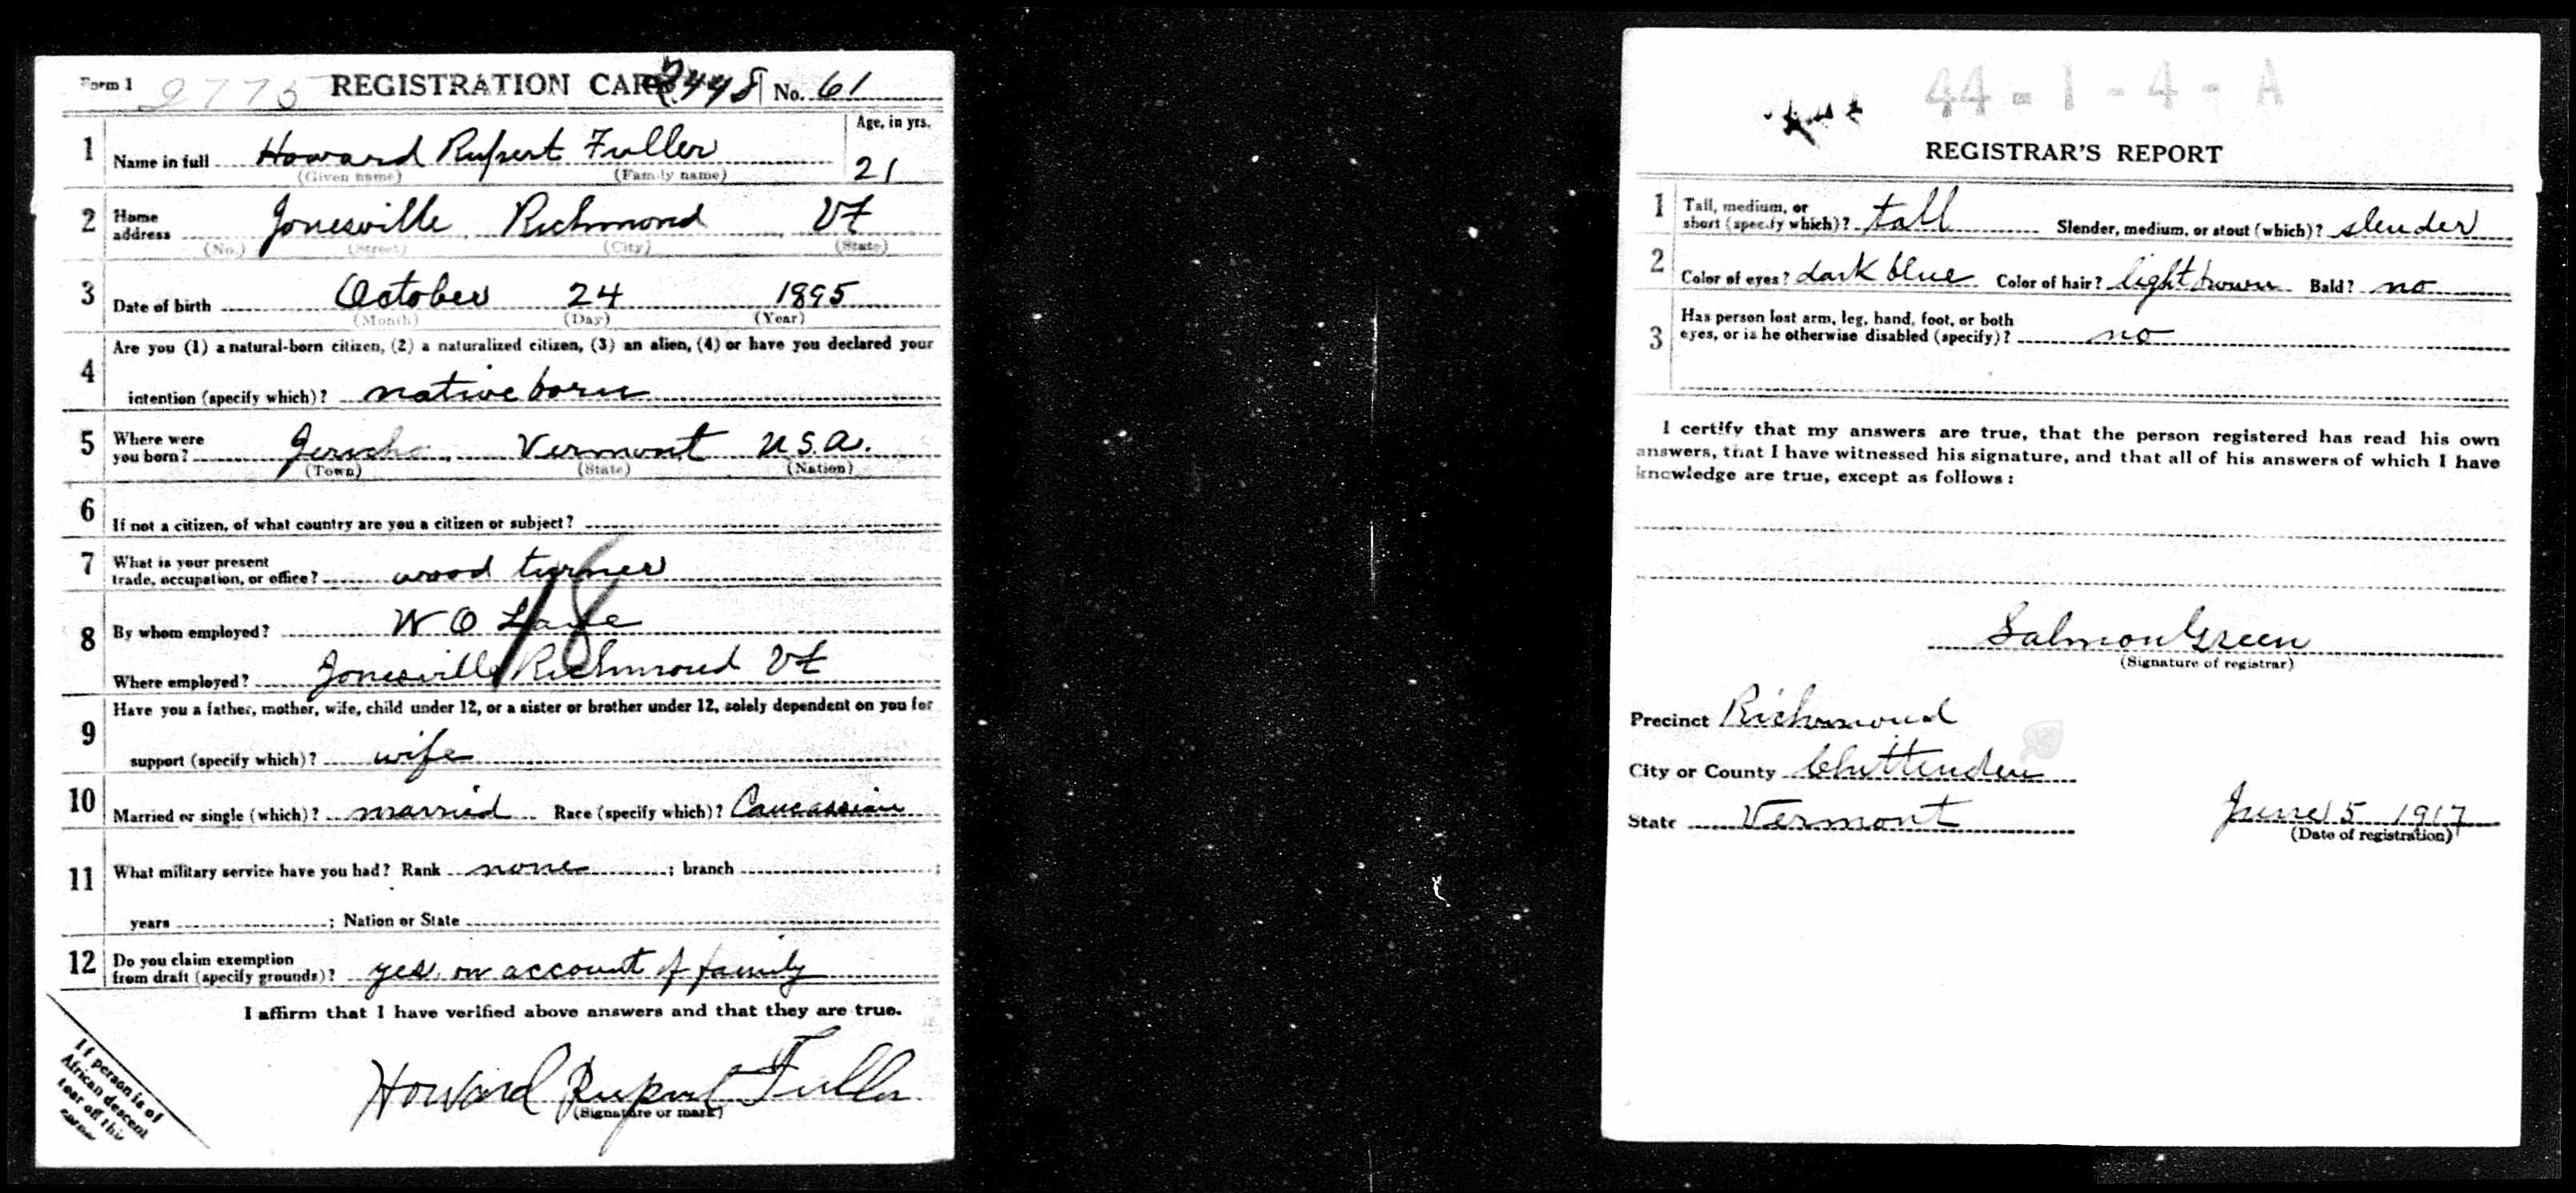 Form 1 2775 REGISTRATION CARD 2448 No. 61
Age, in yrs.
1 Name in full Howard Rupert Fuller 21
(Given name) (Family name)
2 Home address Jonesville, Richmond Vt
(No.) (Street) (City) (State)
3 Date of birth October 24 1895
(Month) (Day) (Year)
4 Are you (1) a natural-born citizen, (2) a naturalized citizen, (3) an alien, (4) or have you declared your
intention (specify which)? native born
5 Where were you born? Jericho, Vermont U.S.A.
(Town) (State) (Nation)
6 If not a citizen, of what country are you a citizen or subject?
7 What is your present trade, occupation, or office? wood turner
8 By whom employed? W O
Where employed? Jonesville Richmond Vt
9 Have you a father, mother, wife, child under 12, or a sister or brother under 12, solely dependent on you for
support (specify which)? wife
10 Married or single (which)? married Race (specify which)? Caucassian
11 What military service have you had? Rank none ; branch ;
years ; Nation or State
12 Do you claim exemption from draft (specify grounds)? yes, on account of family
I affirm that I have verified above answers and that they are true.
Howard Rupert Fuller
(Signature or mark)
If person is of
African descent
tear off this
corner
44 - 1 - 4 - A
REGISTRAR'S REPORT
1 Tall, medium, or short (specify which)? tall Slender, medium, or stout (which)? slender
2 Color of eyes? dark blue Color of hair? light brown Bald? no
3 Has person lost arm, leg, hand, foot, or both
eyes, or is he otherwise disabled (specify)? no
I certify that my answers are true, that the person registered has read his own
answers, that I have witnessed his signature, and that all of his answers of which I have
knowledge are true, except as follows:
Salmon Green
(Signature of registrar)
Precinct Richmond
City or County Chittenden
State Vermont June 5 1917
(Date of registration)